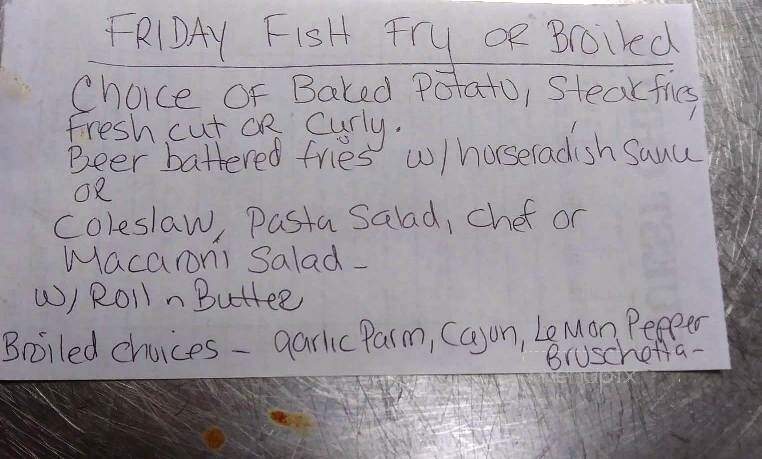 FRIDAY Fish Fry OR Broiled
Choice OF Baked Potato, Steak fries,
Fresh cut OR Curly.
Beer battered fries w/ horseradish Sauce
OR
Coleslaw, Pasta Salad, Chef or
Macaroni Salad -
w/ Roll n Butter
Broiled choices - garlic Parm, Cajun, Lemon Pepper
Bruschetta -